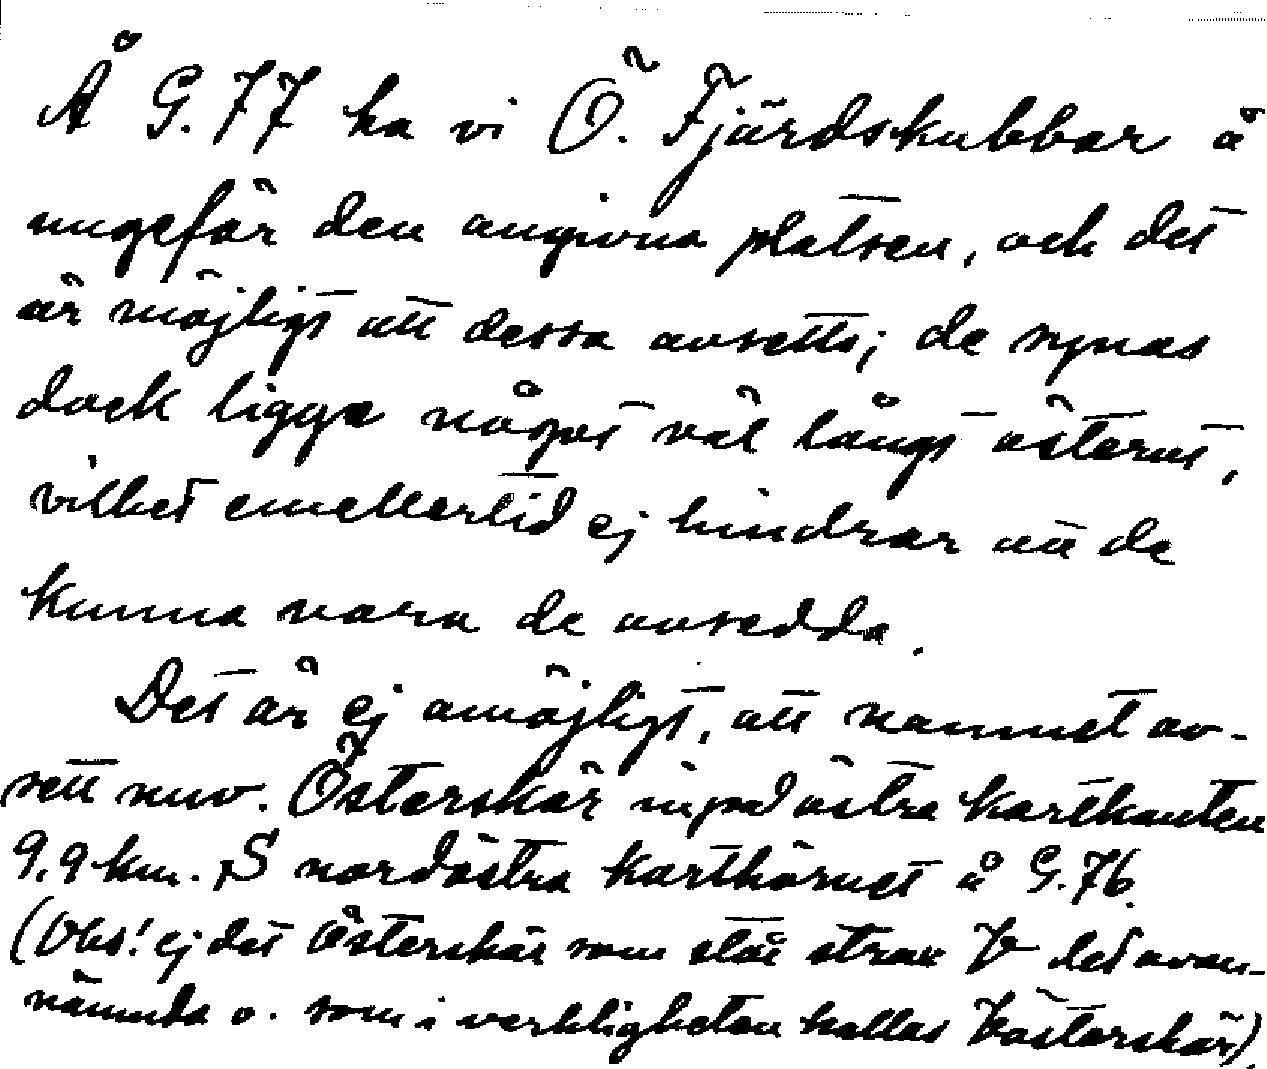 Å G.77 ha vi Ö. Fjärdskubbar å
ungefär den angivna platsen, och det
är möjligt att dessa avsetts; de synas
dock ligga något väl långt österut,
vilket emellertid ej hindrar att de
kunna vara de avsedda.
Det är ej omöjligt, att namnet av-
sett nuv. Österskär inpå östra kartkanten
9,9 km. S nordöstra karthörnet å G.76.
(Obs! ej det Österskär som står strax V det ovan-
nämnda o. som i verkligheten kallas Västerskär).